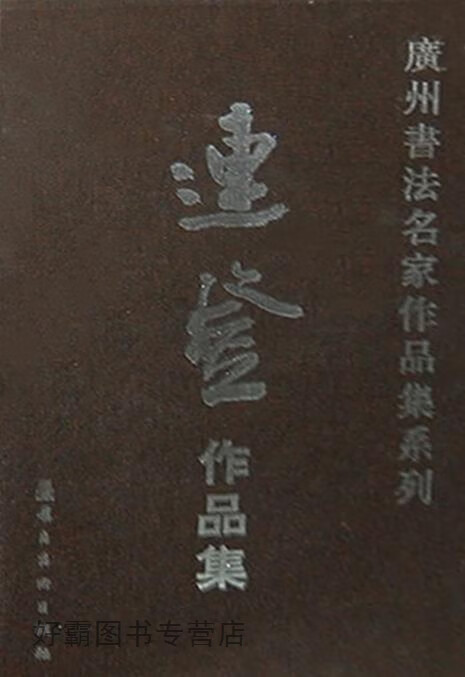 廣州書法名家作品集系列
連登
作品集
好霸图书专营店